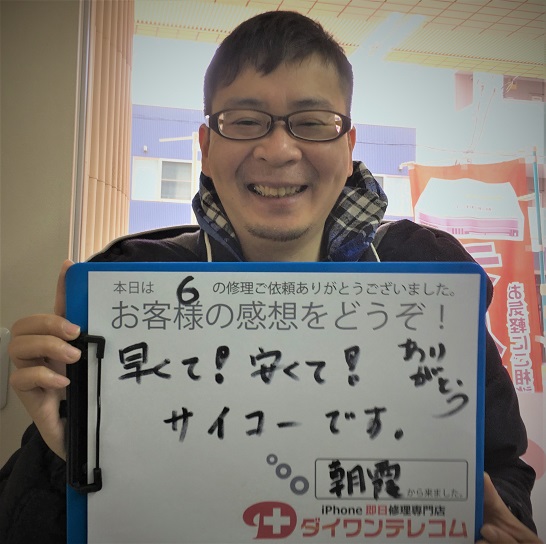 本日は 6 の修理ご依頼ありがとうございました。
お客様の感想をどうぞ!
早くて!安くて!ありがとう
サイコーです。
朝霞から来ました。
iPhone 即日修理専門店
ダイワンテレコム
お気軽にご相